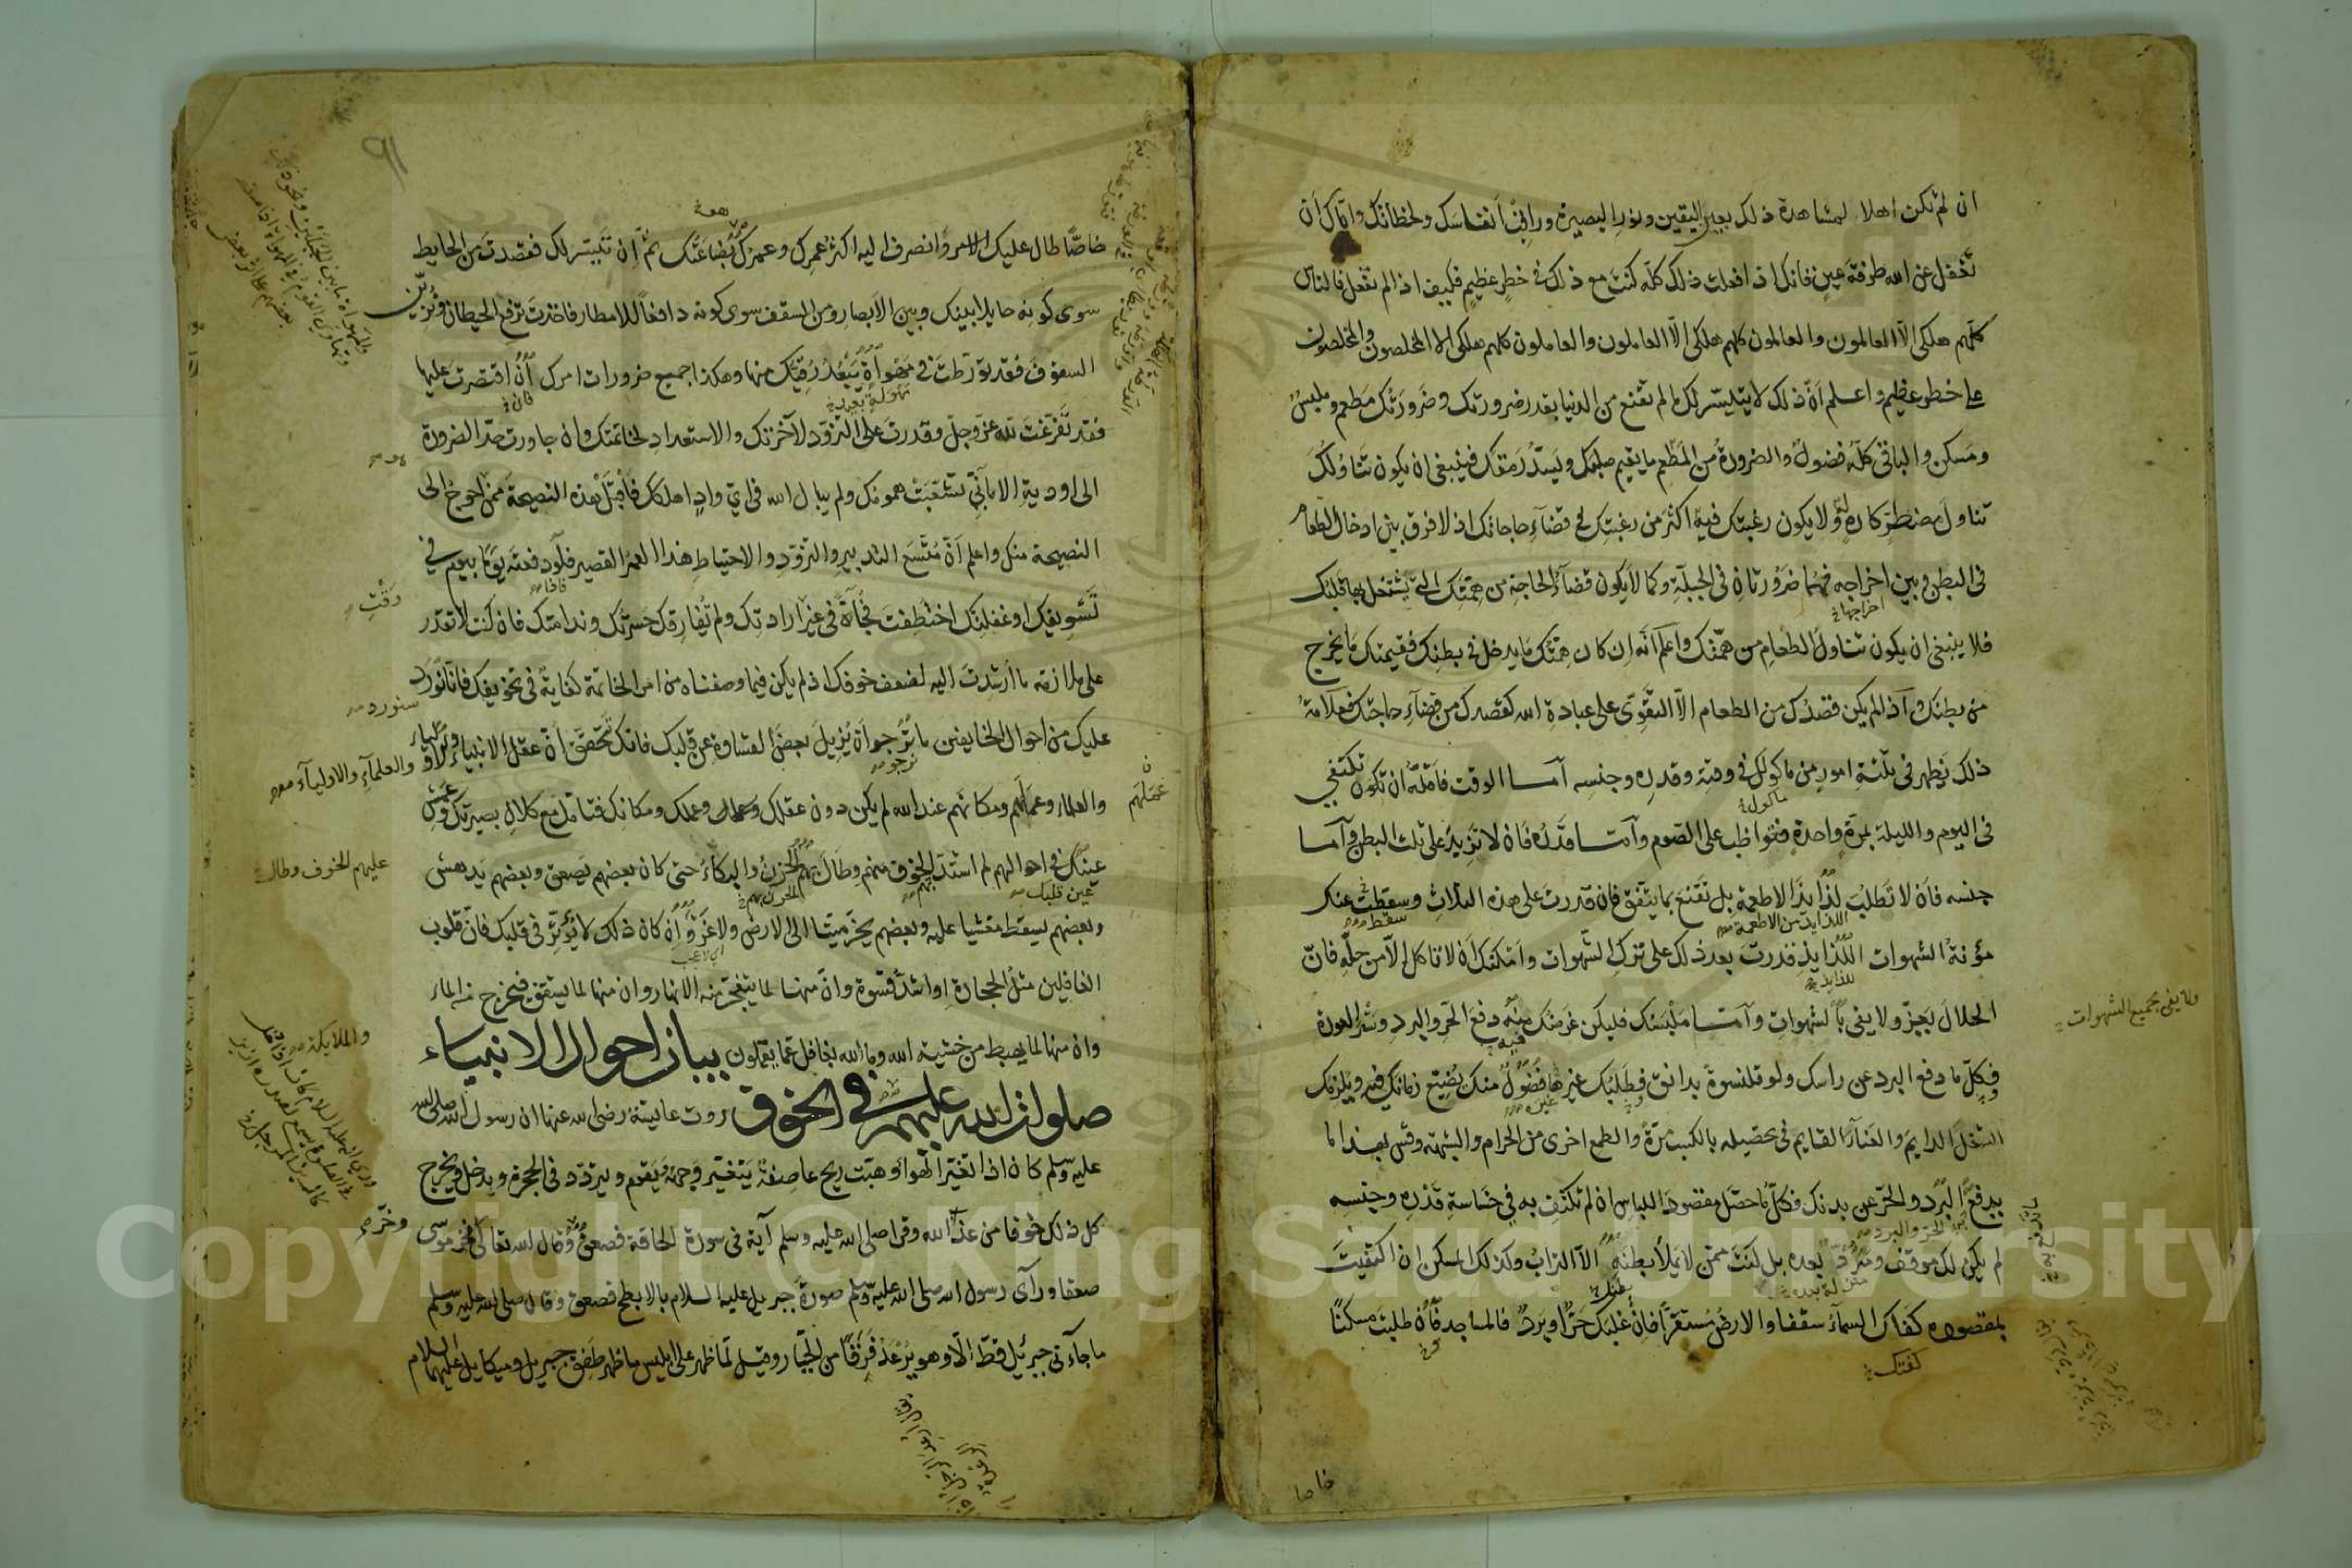 ان لم تكن اهلا لمشاهدة ذلك بعين اليقين ونور البصيرة وراقب أنفاسك ولحظاتك واياك أن
تغفل عن الله طرفة عين فانك اذا فعلت ذلك كلّه كنت مع ذلك في خطر عظيم فكيف اذا لم تفعل فالناس
كلّهم هلكى الّا العالمون والعالمون كلهم هلكى الّا العاملون والعاملون كلهم هلكى الا المخلصون والمخلصون
على خطر عظيم واعلم أنّ ذلك لا يتيسّر لك ما لم تقنع من الدنيا بقدر ضرورتك وضرورتك مطعم وملبس
ومسكن والباقي كلّه فضول والضرورة من المطعم ما يقيم صلبك ويسدّ رمقك فينبغي ان يكون تناولك
تناول مضطرّ كاره له ولا يكون رغبتك فيه اكثر من رغبتك في قضاء حاجاتك اذ لا فرق بين ادخال الطعام
في البطن وبين اخراجه فهما ضرورتان في الجبلّة وكما لا يكون قضاء الحاجة من همّتك التي يشتغل بها قلبك
اخراجها
فلا ينبغي ان يكون تناول الطعام من همّتك واعلم أنّه ان كان همّتك ما يدخل في بطنك فقيمتك ما يخرج
من بطنك واذا لم يكن قصدك من الطعام الّا التقوّى على عبادة الله كقصدك من قضاء حاجتك فعلامة
ذلك تظهر في ثلثة امور من ماكولك في وقته وقدره وجنسه أما الوقت فأقلّه ان تكون تكتفي
ماكول
في اليوم والليلة بمرّة واحدة فتواظب على الصوم وأما قدره فان لا تزيد على ثلث البطن وأما
جنسه فان لا تطلب لذايذ الاطعمة بل تقنع بما يتفق فان قدرت على هذه الثلاث وسقطت عنك
اللذايذ من الاطعمة
سقط
مؤنة الشهوات اللذايذ قدرت بعد ذلك على ترك الشّهوات وأمكنك أن لا تاكل الّا من حلّه فانّ
للذايذ
الحلال يعزّ ولا يفي بالشهوات وأما ملبسك فليكن غرضك منه دفع الحر والبرد وستر العورة
ولا يفي بجميع الشهوات
فيه
فكلّ ما دفع البرد عن راسك ولو قلنسوة بدانق فطلبك غيرها فضول منك يضيّع زمانك فيه ويلزمك
غيره
الشغل الدايم والعناء القايم في تحصيله بالكسب مرّة والطمع اخرى من الحرام والشبهة وقس بهذا ما
يدفع البرد والحرّ عن بدنك فكلّ ما حصّل مقصود اللباس ان لم تكتف به في خساسة قدره وجنسه
الحرّ والبرد
لم يكن لك موقف ومردّ بعده بل كنت ممّن لا يملأ بطنه الّا التراب وكذلك المسكن ان اكتفيت
بمقصوده كفاك السماء سقفا والارض مستقرّا فان غلبك حرّ او برد فالمساجد فان طلبت مسكنًا
كفتك
خاصا
٩١
خاصًّا طال عليك الامر وانصرف اليه اكثر عمرك وعمرك بضاعتك ثمّ ان تيسّر لك فقصدت من الحايط
سوى كونه حايلا بينك وبين الأبصار ومن السقف سوى كونه دافعاً للامطار فاخذت ترفع الحيطان وتزيّن
السقوف فقد تورّطت في مهواة يبعد رقيّك منها وهكذا جميع ضرورات امرك ان اقتصرت عليها
فان
فقد تفرّغت لله عزّ وجلّ وقدرت على التزوّد لآخرتك والاستعداد لخاتمتك وان جاوزت حدّ الضرورة
الى اودية الاماني تشعّبت همومك ولم يبال الله في ايّ واد اهلكك فاقبل هذه النصيحة ممّن احوج الى
النصيحة منك واعلم أنّ متّسع التدبير والتزوّد والاحتياط هذا العمر القصير فاذا دفعته يومًا بيوم في
فاذا
وقت
تسويفك او غفلتك اختطفت فجأة في غير ارادتك ولم تفارقك حسرتك وندامتك فان كنت لا تقدر
على ملازمة ما أرشدت اليه لضعف خوفك اذ لم يكن فيما وصفناه من امر الخاتمة كفاية في تخويفك فانّا نورد
سنورد
عليك من احوال الخايفين ما نرجو أن يزيل بعض القساوة عن قلبك فانك تتحقّق أنّ عقل الانبياء والاولياء
نرجو
والعلماء والاولياء
والعلماء وعملهم ومكانتهم عند الله لم يكن دون عقلك وعملك ومكانك فتأمّل مع كلال بصيرتك وعمش
عملهم
عينك في احوالهم لم اشتدّ الخوف منهم وطال بهم الحزن والبكاء حتى كان بعضهم يصعق وبعضهم يدهش
عليهم الخوف وطال
عين قلبك
بهم
الحزن بهم
وبعضهم يسقط مغشيا عليه وبعضهم يخرّ ميتا الى الارض ولا غرو ان كان ذلك لا يؤثّر في قلبك فانّ قلوب
اي لا عجب
الغافلين مثل الحجارة او اشدّ قسوة وانّ منها لما يتفجّر منه الانهار وان منها لما يشقّق فيخرج منه الماء
وان منها لما يهبط من خشية الله وما الله بغافل عمّا يعملون بيان احوال الانبياء
والملايكة
صلوات الله عليهم في الخوف روت عايشة رضي الله عنها ان رسول الله صلى الله
عليه وسلم كان اذا تغيّر الهواء وهبّت ريح عاصفة يتغيّر وجهه فيقوم ويتردّد في الحجرة ويدخل ويخرج
كل ذلك خوفا من عذاب الله وقرا صلى الله عليه وسلم آية في سورة الحاقة فصعق وقال الله تعالى وخرّ موسى
وخرّ
صعقا ورآى رسول الله صلى الله عليه وسلم صورة جبريل عليه السلام بالابطح فصعق وقال صلى الله عليه وسلم
ما جاءني جبرئيل قطّ الّا وهو يرعد فرقًا من الجبّار وقيل لمّا ظهر على ابليس ما ظهر طفق جبريل وميكايل عليهما السلام
Copyright © King Saud University